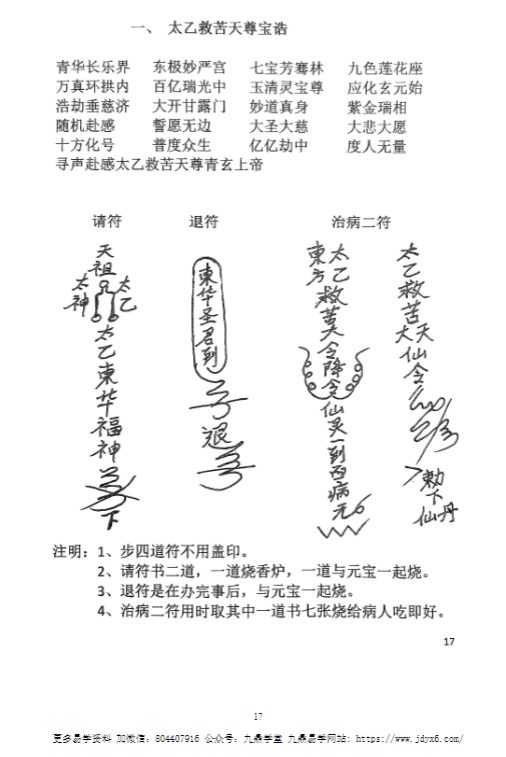 一、 太乙救苦天尊宝诰
青华长乐界 东极妙严宫 七宝芳骞林 九色莲花座
万真环拱内 百亿瑞光中 玉清灵宝尊 应化玄元始
浩劫垂慈济 大开甘露门 妙道真身 紫金瑞相
随机赴感 誓愿无边 大圣大慈 大悲大愿
十方化号 普度众生 亿亿劫中 度人无量
寻声赴感太乙救苦天尊青玄上帝
请符 退符 治病二符
天祖
太神
太乙
太乙東华福神
下
東华圣君到
退
東方
太乙救苦
令降
仙灵一到百病无
太乙救苦
天大仙令
勅下仙丹
注明：1、步四道符不用盖印。
2、请符书二道，一道烧香炉，一道与元宝一起烧。
3、退符是在办完事后，与元宝一起烧。
4、治病二符用时取其中一道书七张烧给病人吃即好。
17
17
更多易学资料 加微信：804407916 公众号：九鼎学堂 九鼎易学网站：https://www.jdyx6.com/